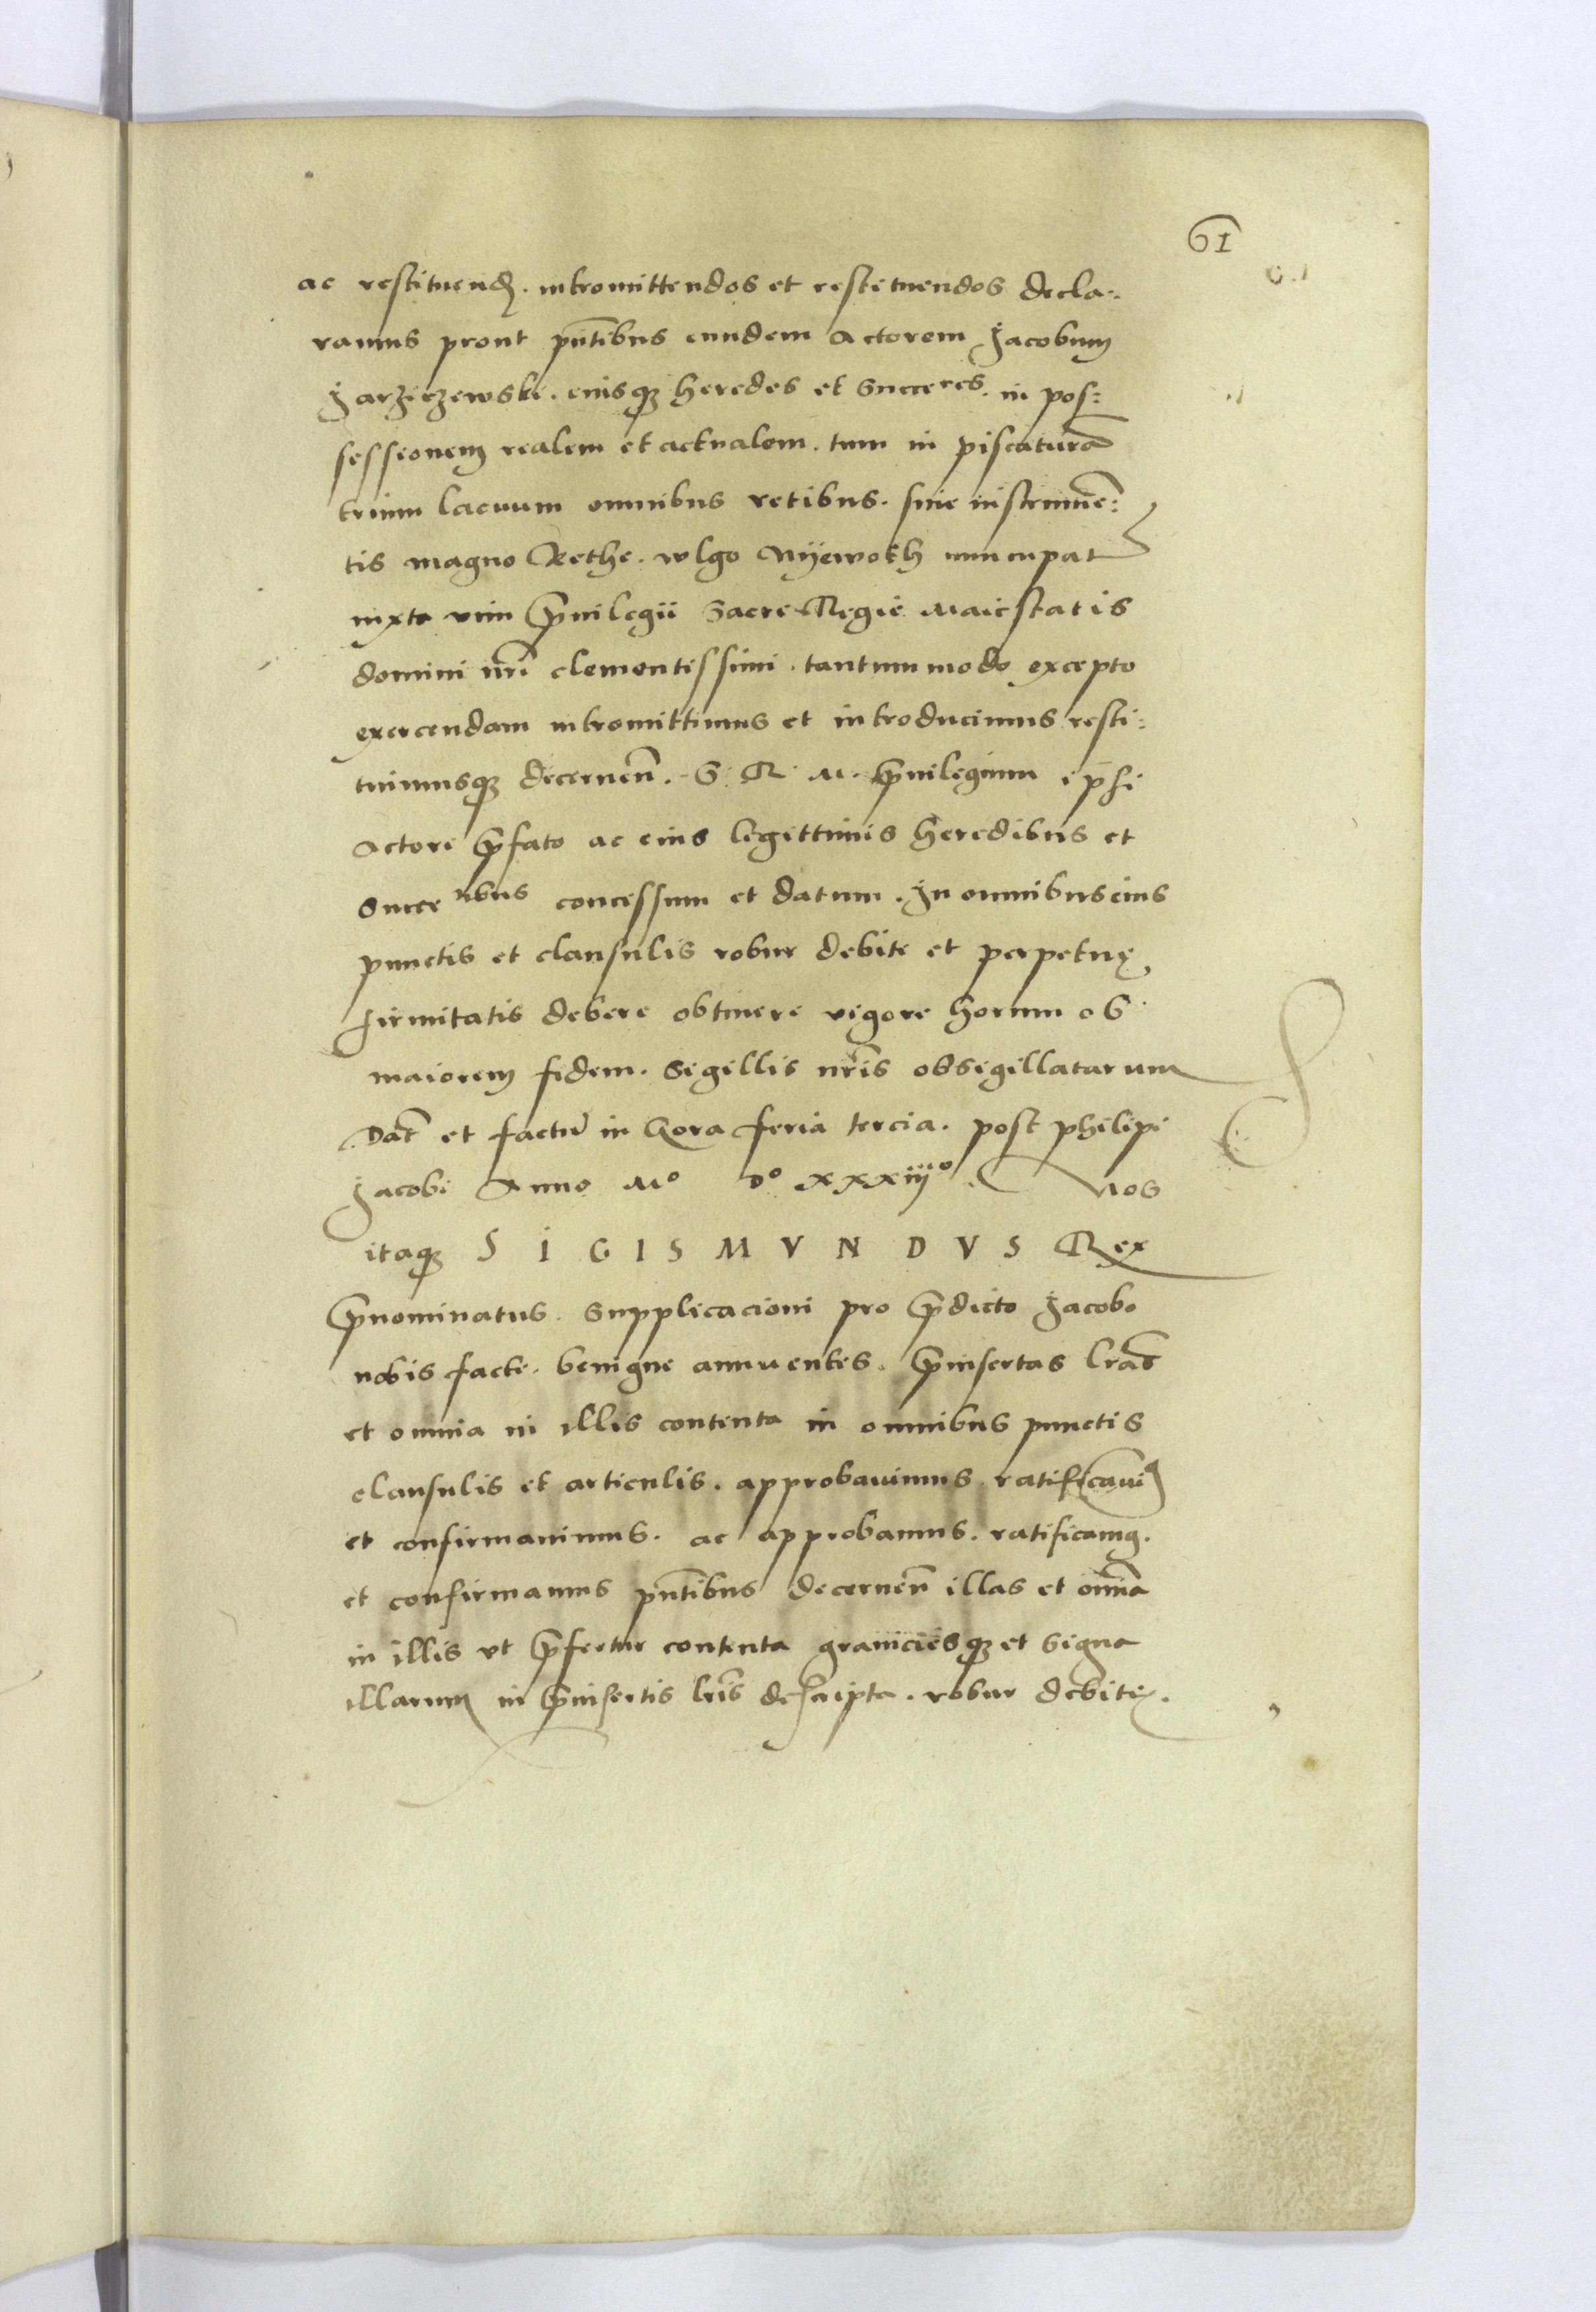 61
ac restituend. intromittendos et restituendos decla-
ramus prout pñtibus eundem Actorem Jacobum
Jarziczewski. eiusq; heredes et Succeres. in pos-
sessionem realem et actualem. tum in piscaturã
trium lacuum omnibus retibus. siue instrumẽ-
tis magno Rethe. wlgo Nÿewokh nuncupat
iuxta vim p̃uilegii Sacre Regie Maiestatis
domini nr̃i clementissimi. tantummodo excepto
exercendam intromittimus et introducimus resti-
tuimusq; decernen̄. S. R. M. p̃uilegium ipsi
Actori p̃fato ac eius legittimis heredibus et
Succeribus concessum et datum. In omnibus eius
punctis et clausulis robur debite et perpetuę
firmitatis debere obtinere vigore horum ob
maiorem fidem. Sigillis nr̃is obsigillatarum
Dat̃ et factũ in Gora feria tercia. post philipi
Jacobi Anno Mo Do xxxiiio. Nos
itaq; S I G I S M V N D V S Rex
p̃nominatus. Supplicacioni pro p̃dicto Jacobo
nobis facte. benigne annuentes. p̃insertas lr̃as
et omnia in illis contenta in omnibus punctis
clausulis et articulis. approbauimus ratificaui9
et confirmauimus. ac approbamus. ratificam9.
et confirmamus pñtibus decernen̄ illas et om̃ia
in illis vt p̃fertur contenta graniciesq; et Signa
illarum in p̃insertis lr̃is descripta. robur debite.